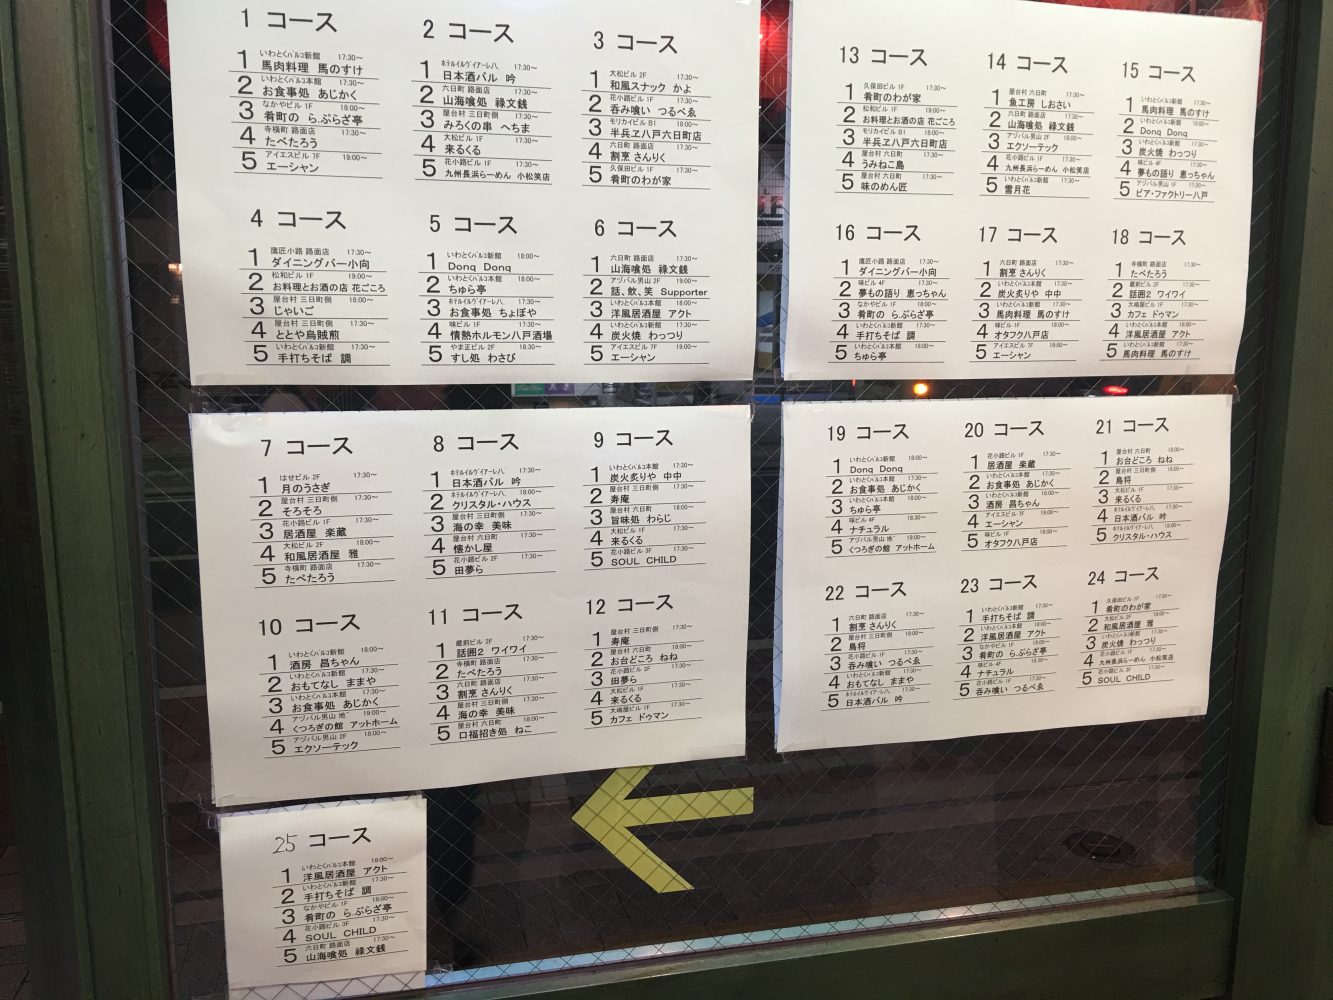 1 コース
いわとくパルコ新館 17:30～
1 馬肉料理 馬のすけ
いわとくパルコ本館 17:30～
2 お食事処 あじかく
なかやビル 1F 18:00～
3 肴町の ら.ぷらざ亭
寺横町 路面店 17:30～
4 たべたろう
アイエスビル 7F 19:00～
5 エーシャン
2 コース
ホテルイルヴィアーレ八. 17:30～
1 日本酒バル 吟
六日町 路面店 17:30～
2 山海喰処 祿文銭
屋台村 三日町側 17:30～
3 みろくの串 へちま
大松ビル 1F 17:30～
4 来るくる
花小路ビル 1F 17:30～
5 九州長浜らーめん 小松笑店
3 コース
大松ビル 2F 17:30～
1 和風スナック かよ
花小路ビル 1F 17:30～
2 呑み喰い つるべゑ
モリカイビル B1 18:00～
3 半兵ヱ八戸六日町店
六日町 路面店 17:30～
4 割烹 さんりく
久保田ビル 1F 17:30～
5 肴町のわが家
4 コース
鷹匠小路 路面店 17:30～
1 ダイニングバー小向
松和ビル 1F 19:00～
2 お料理とお酒の店 花ごころ
屋台村 三日町側 18:00～
3 じゃいご
屋台村 三日町側 17:30～
4 ととや烏賊煎
いわとくパルコ新館 17:30～
5 手打ちそば 調
5 コース
いわとくパルコ新館 18:00～
1 Donq Donq
いわとくパルコ本館 18:00～
2 ちゅら亭
ホテルイルヴィアーレ八. 17:30～
3 お食事処 ちょぼや
味ビル 1F 17:30～
4 情熱ホルモン八戸酒場
やま正ビル 2F 18:30～
5 すし処 わさび
6 コース
六日町 路面店 17:30～
1 山海喰処 祿文銭
アヅパル男山 2F 17:30～
2 話、飲、笑 Supporter
いわとくパルコ本館 18:00～
3 洋風居酒屋 アクト
いわとくパルコ新館 17:30～
4 炭火焼 わっつり
アイエスビル 7F 19:00～
5 エーシャン
7 コース
はせビル 2F 17:30～
1 月のうさぎ
屋台村 三日町側 17:30～
2 そろそろ
花小路ビル 1F 17:30～
3 居酒屋 楽蔵
大松ビル 2F 18:00～
4 和風居酒屋 雅
寺横町 路面店 17:30～
5 たべたろう
8 コース
ホテルイルヴィアーレ八. 17:30～
1 日本酒バル 吟
ホテルイルヴィアーレ八. 18:00～
2 クリスタル・ハウス
屋台村 三日町側 17:30～
3 海の幸 美味
屋台村 六日町 17:30～
4 懐かし屋
花小路ビル 2F 17:30～
5 田夢ら
9 コース
いわとくパルコ本館 17:30～
1 炭火炙りや 中中
屋台村 三日町側 17:30～
2 寿庵
屋台村 六日町 18:00～
3 旨味処 わらじ
大松ビル 1F 17:30～
4 来るくる
花小路ビル 3F 17:30～
5 SOUL CHILD
10 コース
いわとくパルコ新館 18:00～
1 酒房 昌ちゃん
いわとくパルコ新館 17:30～
2 おもてなし ままや
いわとくパルコ本館 17:30～
3 お食事処 あじかく
アヅパル男山 地 19:00～
4 くつろぎの館 アットホーム
アヅパル男山 2F 18:00～
5 エクソーテック
11 コース
蔵前ビル 2F 17:30～
1 話囲2 ワイワイ
寺横町 路面店 17:30～
2 たべたろう
六日町 路面店 17:30～
3 割烹 さんりく
屋台村 三日町側 17:30～
4 海の幸 美味
屋台村 六日町 18:00～
5 口福招き処 ねこ
12 コース
屋台村 三日町側 17:30～
1 寿庵
屋台村 六日町 18:00～
2 お台どころ ねね
花小路ビル 2F 17:30～
3 田夢ら
大松ビル 1F 17:30～
4 来るくる
大嶋屋ビル 1F 17:30～
5 カフェ ドゥマン
13 コース
久保田ビル 1F 17:30～
1 肴町のわが家
松和ビル 1F 19:00～
2 お料理とお酒の店 花ごころ
モリカイビル B1 18:00～
3 半兵ヱ八戸六日町店
屋台村 六日町 17:30～
4 うみねこ島
屋台村 六日町 17:30～
5 味のめん匠
14 コース
屋台村 六日町 17:30～
1 魚工房 しおさい
六日町 路面店 17:30～
2 山海喰処 祿文銭
アヅパル男山 2F 18:00～
3 エクソーテック
花小路ビル 1F 17:30～
4 九州長浜らーめん 小松笑店
いわとくパルコ新館 17:30～
5 雪月花
15 コース
いわとくパルコ新館 17:30～
1 馬肉料理 馬のすけ
いわとくパルコ新館 18:00～
2 Donq Donq
いわとくパルコ新館 17:30～
3 炭火焼 わっつり
味ビル 4F 17:30～
4 夢もの語り 恵っちゃん
アヅパル男山 1F 17:30～
5 ビア・ファクトリー八戸
16 コース
鷹匠小路 路面店 17:30～
1 ダイニングバー小向
味ビル 4F 17:30～
2 夢もの語り 恵っちゃん
なかやビル 1F 18:00～
3 肴町の ら.ぷらざ亭
いわとくパルコ新館 17:30～
4 手打ちそば 調
いわとくパルコ本館 18:00～
5 ちゅら亭
17 コース
六日町 路面店 17:30～
1 割烹 さんりく
いわとくパルコ本館 17:30～
2 炭火炙りや 中中
いわとくパルコ新館 17:30～
3 馬肉料理 馬のすけ
味ビル 1F 17:30～
4 オタフク八戸店
アイエスビル 7F 19:00～
5 エーシャン
18 コース
寺横町 路面店 17:30～
1 たべたろう
蔵前ビル 2F 17:30～
2 話囲2 ワイワイ
大嶋屋ビル 1F 17:30～
3 カフェ ドゥマン
いわとくパルコ本館 18:00～
4 洋風居酒屋 アクト
いわとくパルコ新館 17:30～
5 馬肉料理 馬のすけ
19 コース
いわとくパルコ新館 18:00～
1 Donq Donq
いわとくパルコ本館 17:30～
2 お食事処 あじかく
いわとくパルコ本館 18:00～
3 ちゅら亭
味ビル 4F 17:30～
4 ナチュラル
アヅパル男山 地 19:00～
5 くつろぎの館 アットホーム
20 コース
花小路ビル 1F 17:30～
1 居酒屋 楽蔵
いわとくパルコ本館 17:30～
2 お食事処 あじかく
いわとくパルコ新館 18:00～
3 酒房 昌ちゃん
アイエスビル 7F 19:00～
4 エーシャン
味ビル 1F 17:30～
5 オタフク八戸店
21 コース
屋台村 六日町 18:00～
1 お台どころ ねね
屋台村 三日町側 17:30～
2 鳥将
大松ビル 1F 17:30～
3 来るくる
ホテルイルヴィアーレ八. 17:30～
4 日本酒バル 吟
ホテルイルヴィアーレ八. 18:00～
5 クリスタル・ハウス
22 コース
六日町 路面店 17:30～
1 割烹 さんりく
屋台村 三日町側 17:30～
2 鳥将
花小路ビル 1F 17:30～
3 呑み喰い つるべゑ
いわとくパルコ新館 17:30～
4 おもてなし ままや
ホテルイルヴィアーレ八. 17:30～
5 日本酒バル 吟
23 コース
いわとくパルコ新館 17:30～
1 手打ちそば 調
いわとくパルコ本館 18:00～
2 洋風居酒屋 アクト
なかやビル 1F 18:00～
3 肴町の ら.ぷらざ亭
味ビル 4F 17:30～
4 ナチュラル
花小路ビル 1F 17:30～
5 呑み喰い つるべゑ
24 コース
久保田ビル 1F 17:30～
1 肴町のわが家
大松ビル 2F 18:00～
2 和風居酒屋 雅
いわとくパルコ新館 17:30～
3 炭火焼 わっつり
花小路ビル 1F 17:30～
4 九州長浜らーめん 小松笑店
花小路ビル 3F 17:30～
5 SOUL CHILD
25 コース
いわとくパルコ本館 18:00～
1 洋風居酒屋 アクト
いわとくパルコ新館 17:30～
2 手打ちそば 調
なかやビル 1F 18:00～
3 肴町の ら.ぷらざ亭
花小路ビル 3F 17:30～
4 SOUL CHILD
六日町 路面店 17:30～
5 山海喰処 祿文銭